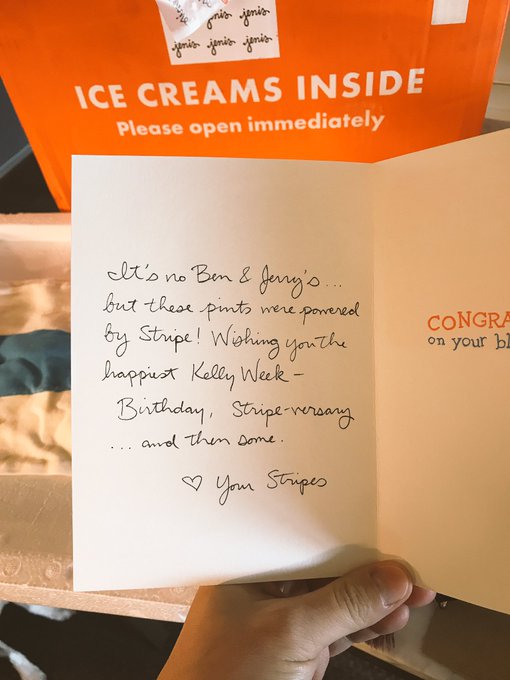 jenis
jenis jenis
jenis jenis jenis
ICE CREAMS INSIDE
Please open immediately
It's no Ben & Jerry's...
but these pints were powered
by Stripe! Wishing you the
happiest Kelly Week –
Birthday, Stripe-versary
... and then some.
♡ Your Stripes
CONGRA
on your bl